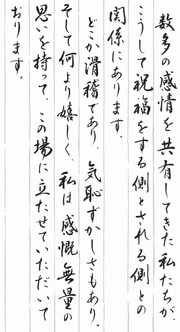 数多の感情を共有してきた私たちが、
こうして祝福をする側とされる側との
関係にあります。
どこか滑稽であり、気恥ずかしさもあり、
そして何より嬉しく、私は感慨無量の
思いを持って、この場に立たせていただいて
おります。